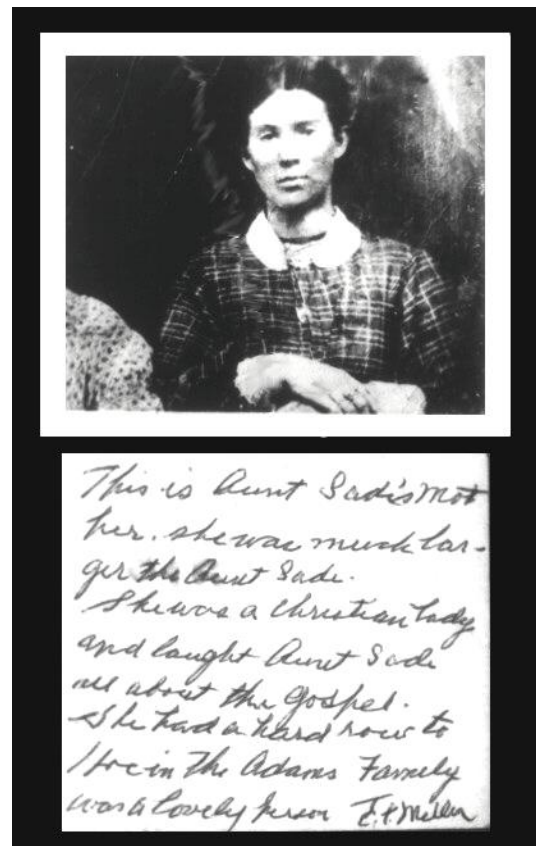 This is Aunt Sadis Mot
her. she was much lar-
ger the Aunt Sade.
She was a christian lady
and taught Aunt Sade
all about the gospel.
She had a hard row to
Hoe in the Adams Family
was a lovely person E.P. Miller